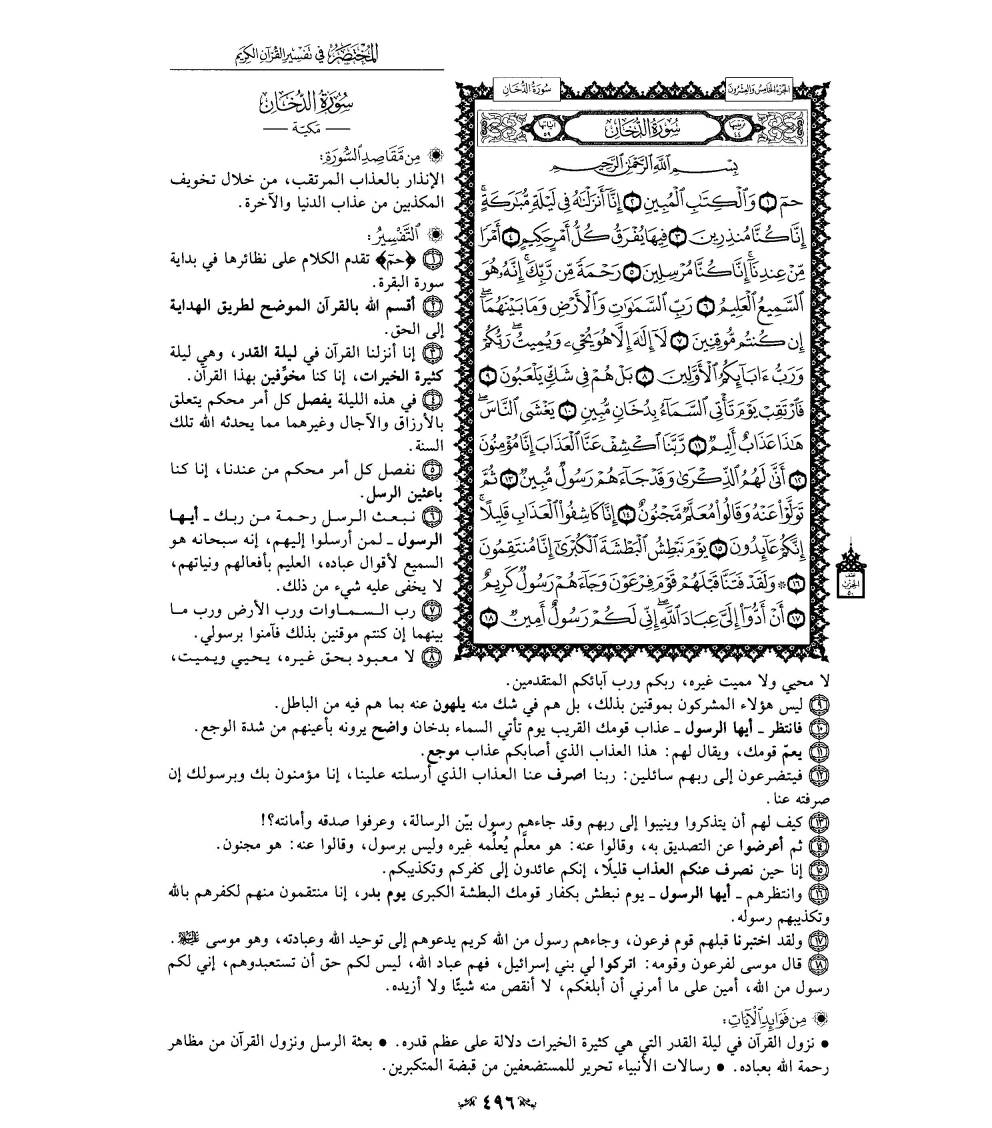 المختصر في تفسير القرآن الكريم
سورة الدخان
الجزء الخامس والعشرون
ترتيبها ٤٤
سورة الدخان
آياتها ٥٩
بِسْمِ اللَّهِ الرَّحْمَٰنِ الرَّحِيمِ
حمٓ ١ وَٱلْكِتَٰبِ ٱلْمُبِينِ ٢ إِنَّآ أَنزَلْنَٰهُ فِى لَيْلَةٍ مُّبَٰرَكَةٍۚ
إِنَّا كُنَّا مُنذِرِينَ ٣ فِيهَا يُفْرَقُ كُلُّ أَمْرٍ حَكِيمٍ ٤ أَمْرًا
مِّنْ عِندِنَآۚ إِنَّا كُنَّا مُرْسِلِينَ ٥ رَحْمَةً مِّن رَّبِّكَۚ إِنَّهُۥ هُوَ
ٱلسَّمِيعُ ٱلْعَلِيمُ ٦ رَبِّ ٱلسَّمَٰوَٰتِ وَٱلْأَرْضِ وَمَا بَيْنَهُمَآۖ
إِن كُنتُم مُّوقِنِينَ ٧ لَآ إِلَٰهَ إِلَّا هُوَ يُحْىِۦ وَيُمِيتُۖ رَبُّكُمْ
وَرَبُّ ءَابَآئِكُمُ ٱلْأَوَّلِينَ ٨ بَلْ هُمْ فِى شَكٍّ يَلْعَبُونَ ٩
فَٱرْتَقِبْ يَوْمَ تَأْتِى ٱلسَّمَآءُ بِدُخَانٍ مُّبِينٍ ١٠ يَغْشَى ٱلنَّاسَۖ
هَٰذَا عَذَابٌ أَلِيمٌ ١١ رَّبَّنَا ٱكْشِفْ عَنَّا ٱلْعَذَابَ إِنَّا مُؤْمِنُونَ
١٢ أَنَّىٰ لَهُمُ ٱلذِّكْرَىٰ وَقَدْ جَآءَهُمْ رَسُولٌ مُّبِينٌ ١٣ ثُمَّ
تَوَلَّوْا۟ عَنْهُ وَقَالُوا۟ مُعَلَّمٌ مَّجْنُونٌ ١٤ إِنَّا كَاشِفُوا۟ ٱلْعَذَابِ قَلِيلًاۚ
إِنَّكُمْ عَآئِدُونَ ١٥ يَوْمَ نَبْطِشُ ٱلْبَطْشَةَ ٱلْكُبْرَىٰٓ إِنَّا مُنتَقِمُونَ
١٦ ۞ وَلَقَدْ فَتَنَّا قَبْلَهُمْ قَوْمَ فِرْعَوْنَ وَجَآءَهُمْ رَسُولٌ كَرِيمٌ
١٧ أَنْ أَدُّوٓا۟ إِلَىَّ عِبَادَ ٱللَّهِۖ إِنِّى لَكُمْ رَسُولٌ أَمِينٌ ١٨
نصف
الحزب
٥٠
سورة الدخان
— مكية —
من مقاصد السورة:
الإنذار بالعذاب المرتقب، من خلال تخويف
المكذبين من عذاب الدنيا والآخرة.
التفسير:
١ ﴿حمٓ﴾ تقدم الكلام على نظائرها في بداية
سورة البقرة.
٢ أقسم الله بالقرآن الموضح لطريق الهداية
إلى الحق.
٣ إنا أنزلنا القرآن في ليلة القدر، وهي ليلة
كثيرة الخيرات، إنا كنا مخوِّفين بهذا القرآن.
٤ في هذه الليلة يفصل كل أمر محكم يتعلق
بالأرزاق والآجال وغيرهما مما يحدثه الله تلك
السنة.
٥ نفصل كل أمر محكم من عندنا، إنا كنا
باعثين الرسل.
٦ نبعث الرسل رحمة من ربك - أيها
الرسول - لمن أرسلوا إليهم، إنه سبحانه هو
السميع لأقوال عباده، العليم بأفعالهم ونياتهم،
لا يخفى عليه شيء من ذلك.
٧ رب السماوات ورب الأرض ورب ما
بينهما إن كنتم موقنين بذلك فآمنوا برسولي.
٨ لا معبود بحق غيره، يحيي ويميت،
لا محيي ولا مميت غيره، ربكم ورب آبائكم المتقدمين.
٩ ليس هؤلاء المشركون بموقنين بذلك، بل هم في شك منه يلهون عنه بما هم فيه من الباطل.
١٠ فانتظر - أيها الرسول - عذاب قومك القريب يوم تأتي السماء بدخان واضح يرونه بأعينهم من شدة الوجع.
١١ يعمّ قومك، ويقال لهم: هذا العذاب الذي أصابكم عذاب موجع.
١٢ فيتضرعون إلى ربهم سائلين: ربنا اصرف عنا العذاب الذي أرسلته علينا، إنا مؤمنون بك وبرسولك إن
صرفته عنا.
١٣ كيف لهم أن يتذكروا وينيبوا إلى ربهم وقد جاءهم رسول بيّن الرسالة، وعرفوا صدقه وأمانته؟!
١٤ ثم أعرضوا عن التصديق به، وقالوا عنه: هو معلَّم يُعلِّمه غيره وليس برسول، وقالوا عنه: هو مجنون.
١٥ إنا حين نصرف عنكم العذاب قليلًا، إنكم عائدون إلى كفركم وتكذيبكم.
١٦ وانتظرهم - أيها الرسول - يوم نبطش بكفار قومك البطشة الكبرى يوم بدر، إنا منتقمون منهم لكفرهم بالله
وتكذيبهم رسوله.
١٧ ولقد اختبرنا قبلهم قوم فرعون، وجاءهم رسول من الله كريم يدعوهم إلى توحيد الله وعبادته، وهو موسى عليه السلام.
١٨ قال موسى لفرعون وقومه: اتركوا لي بني إسرائيل، فهم عباد الله، ليس لكم حق أن تستعبدوهم، إني لكم
رسول من الله، أمين على ما أمرني أن أبلغكم، لا أنقص منه شيئًا ولا أزيده.
من فوائد الآيات:
• نزول القرآن في ليلة القدر التي هي كثيرة الخيرات دلالة على عظم قدره. • بعثة الرسل ونزول القرآن من مظاهر
رحمة الله بعباده. • رسالات الأنبياء تحرير للمستضعفين من قبضة المتكبرين.
٤٩٦